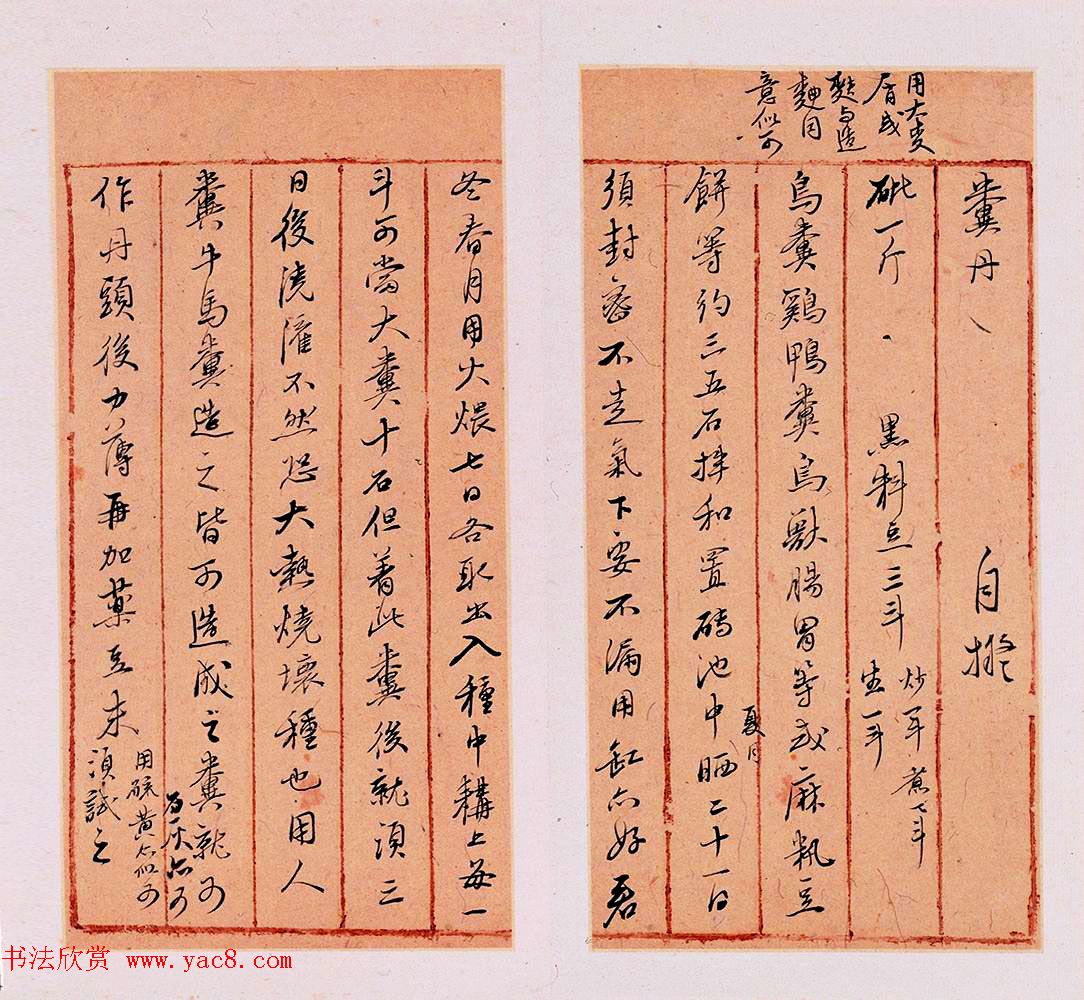 糞丹 自擬
砒一斤 黑料豆三斗 炒一斗 煮一斗 生一斗
鳥糞鷄鴨糞鳥獸腸胃等或麻籸豆
餅等約三五石拌和置磚池中晒二十一日
夏月
須封密不走氣下要不漏用缸亦好若
用大麥
屑或
麩与造
麯同
意似可
冬春月用火煨七日各取出入種中耩上每一
斗可當大糞十石但着此糞後就須三
日後澆灌不然恐大熱燒壞種也用人
糞牛馬糞造之皆可造成之糞就可
作丹頭後力薄再加藥豆末
用硫黃亦似可
石灰亦可
須試之
书法欣赏 www.yac8.com